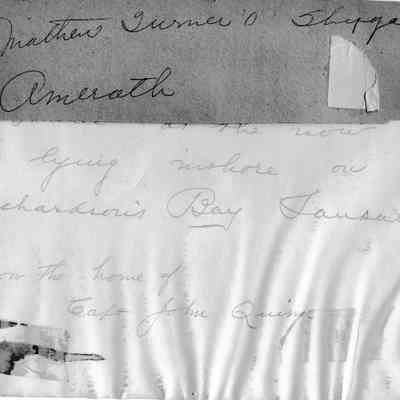 Mathew Turner'o' Shipya
Amerath
at the now
lying inshore on
chardson's Bay Sausa
ow the home of
Capt John Quinn